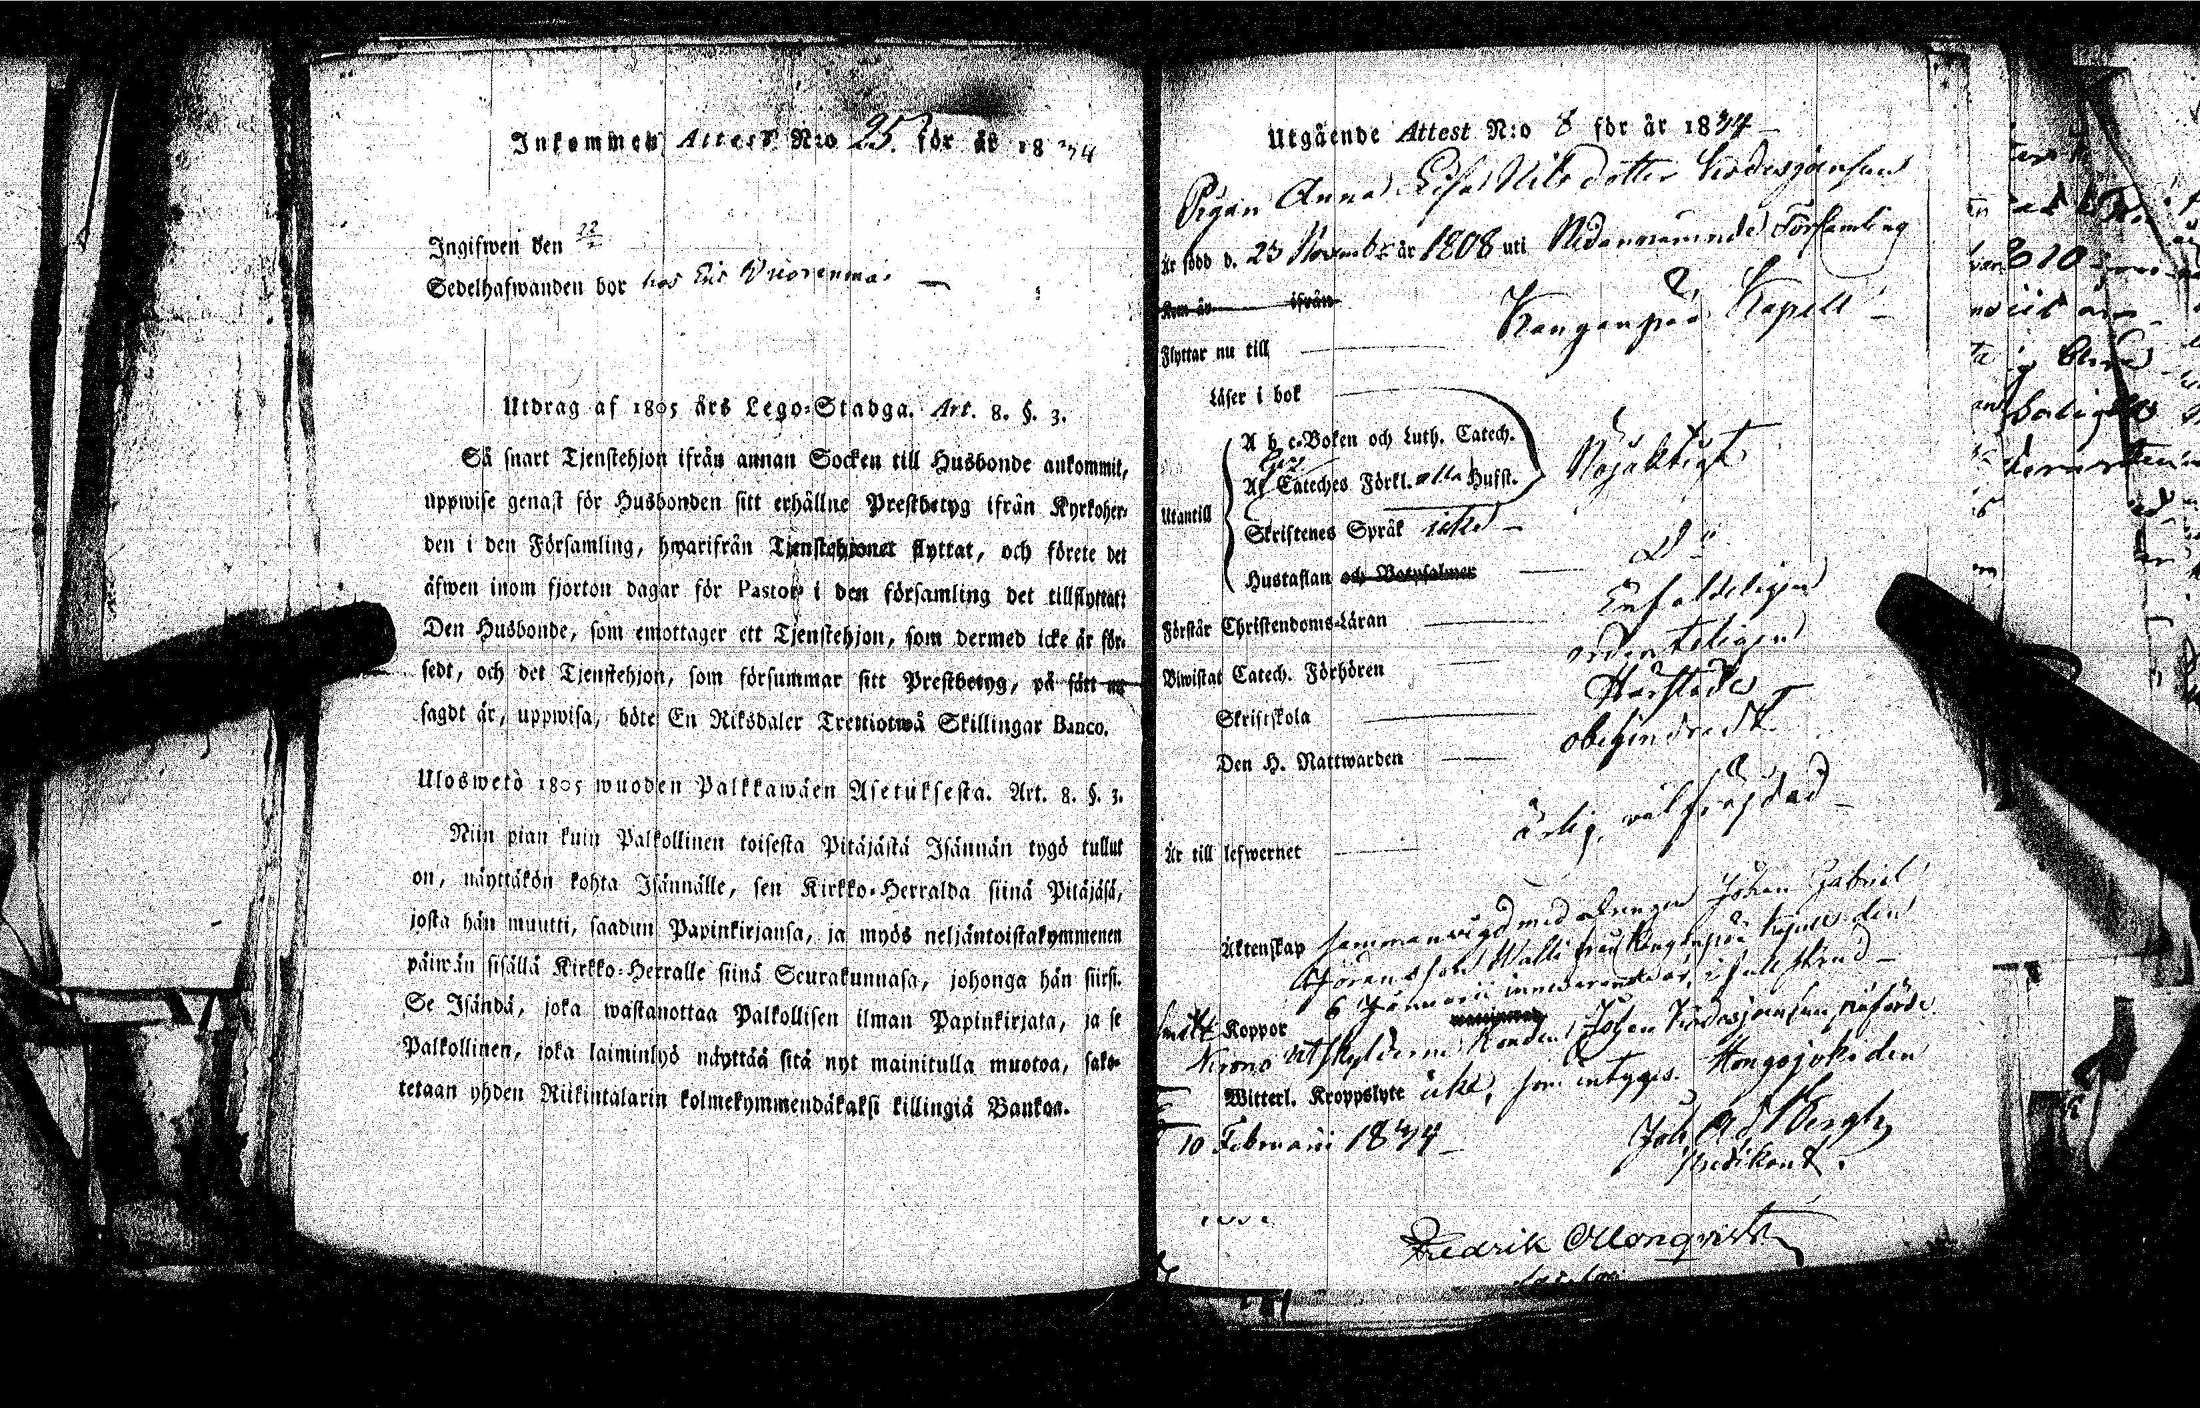 Inkommen Attest N:o 25 för år 1834
Ingifwen den 22/2
Sedelhafwanden bor hos Eric Vuorenmaa
Utdrag af 1805 års Lego-Stadga. Art. 8. §. 3.
Så snart Tjenstehjon ifrån annan Socken till Husbonde ankommit,
uppwise genast för Husbonden sitt erhållne Prestbetyg ifrån Kyrkoher-
den i den Församling, hwarifrån Tjenstehjonet flyttat, och förete det
äfwen inom fjorton dagar för Pastor i den församling det tillflyttatt
Den Husbonde, som emottager ett Tjenstehjon, som dermed icke är för-
sedt, och det Tjenstehjon, som försummar sitt Prestbetyg, på sätt nu
sagdt är, uppwisa, böte En Riksdaler Trettiotwå Skillingar Banco.
Uloswetò 1805 wuoden Palkkawäen Asetuksesta. Art. 8. §. 3.
Niin pian kuin Palkollinen toisesta Pitäjästä Isännän tygö tullut
on, näyttäkön kohta Isännälle, sen Kirkko-Herralda siinä Pitäjäsä,
josta hän muutti, saadun Papinkirjansa, ja myös neljäntoistakymmenen
päiwän sisällä Kirkko-Herralle siinä Seurakunnasa, johonga hän siirsi.
Se Isändä, joka wastanottaa Palkollisen ilman Papinkirjata, ja se
Palkollinen, joka laiminlyö näyttää sitä nyt mainitulla muotoa, sako-
tetaan yhden Riikintalarin kolmekymmendäkaksi killingiä Bankoa.
Utgående Attest N:o 8 för år 1834
Pigan Anna Lisa Nilsdotter
Är född d. 23 Novembr år 1808 uti Nedannämnde Församling
Kom år ifrån
Flyttar nu till Kanganpää Kapell
Läser i bok
A b c-Boken och Luth. Catech.
Af Cateches Förkl. alla Hufst. Nöjaktigt
Utantill
Skriftenes Språk icke
Hustaflan och Botpsalmer Do
Förstår Christendoms-Läran Enfaldeligen
Biwistat Catech. Förhören ordenteligen
Skriftskola
Den H. Nattwarden obehindradt
Är till lefwernet ärlig, wälfräjdad
Äktenskap sammanvigd med drengen Johan Gabriel
Göransson Walli från Kangenpää Kapell den
6 Januarii innevarande år, i full skrud
Koppor
Krono Utskylderne Johan
Witterl. Kroppslyte icke, som intygas. Hongojoki den
10 Februarii 1834
Joh. Ad. Bergh
predikant.
Fredrik